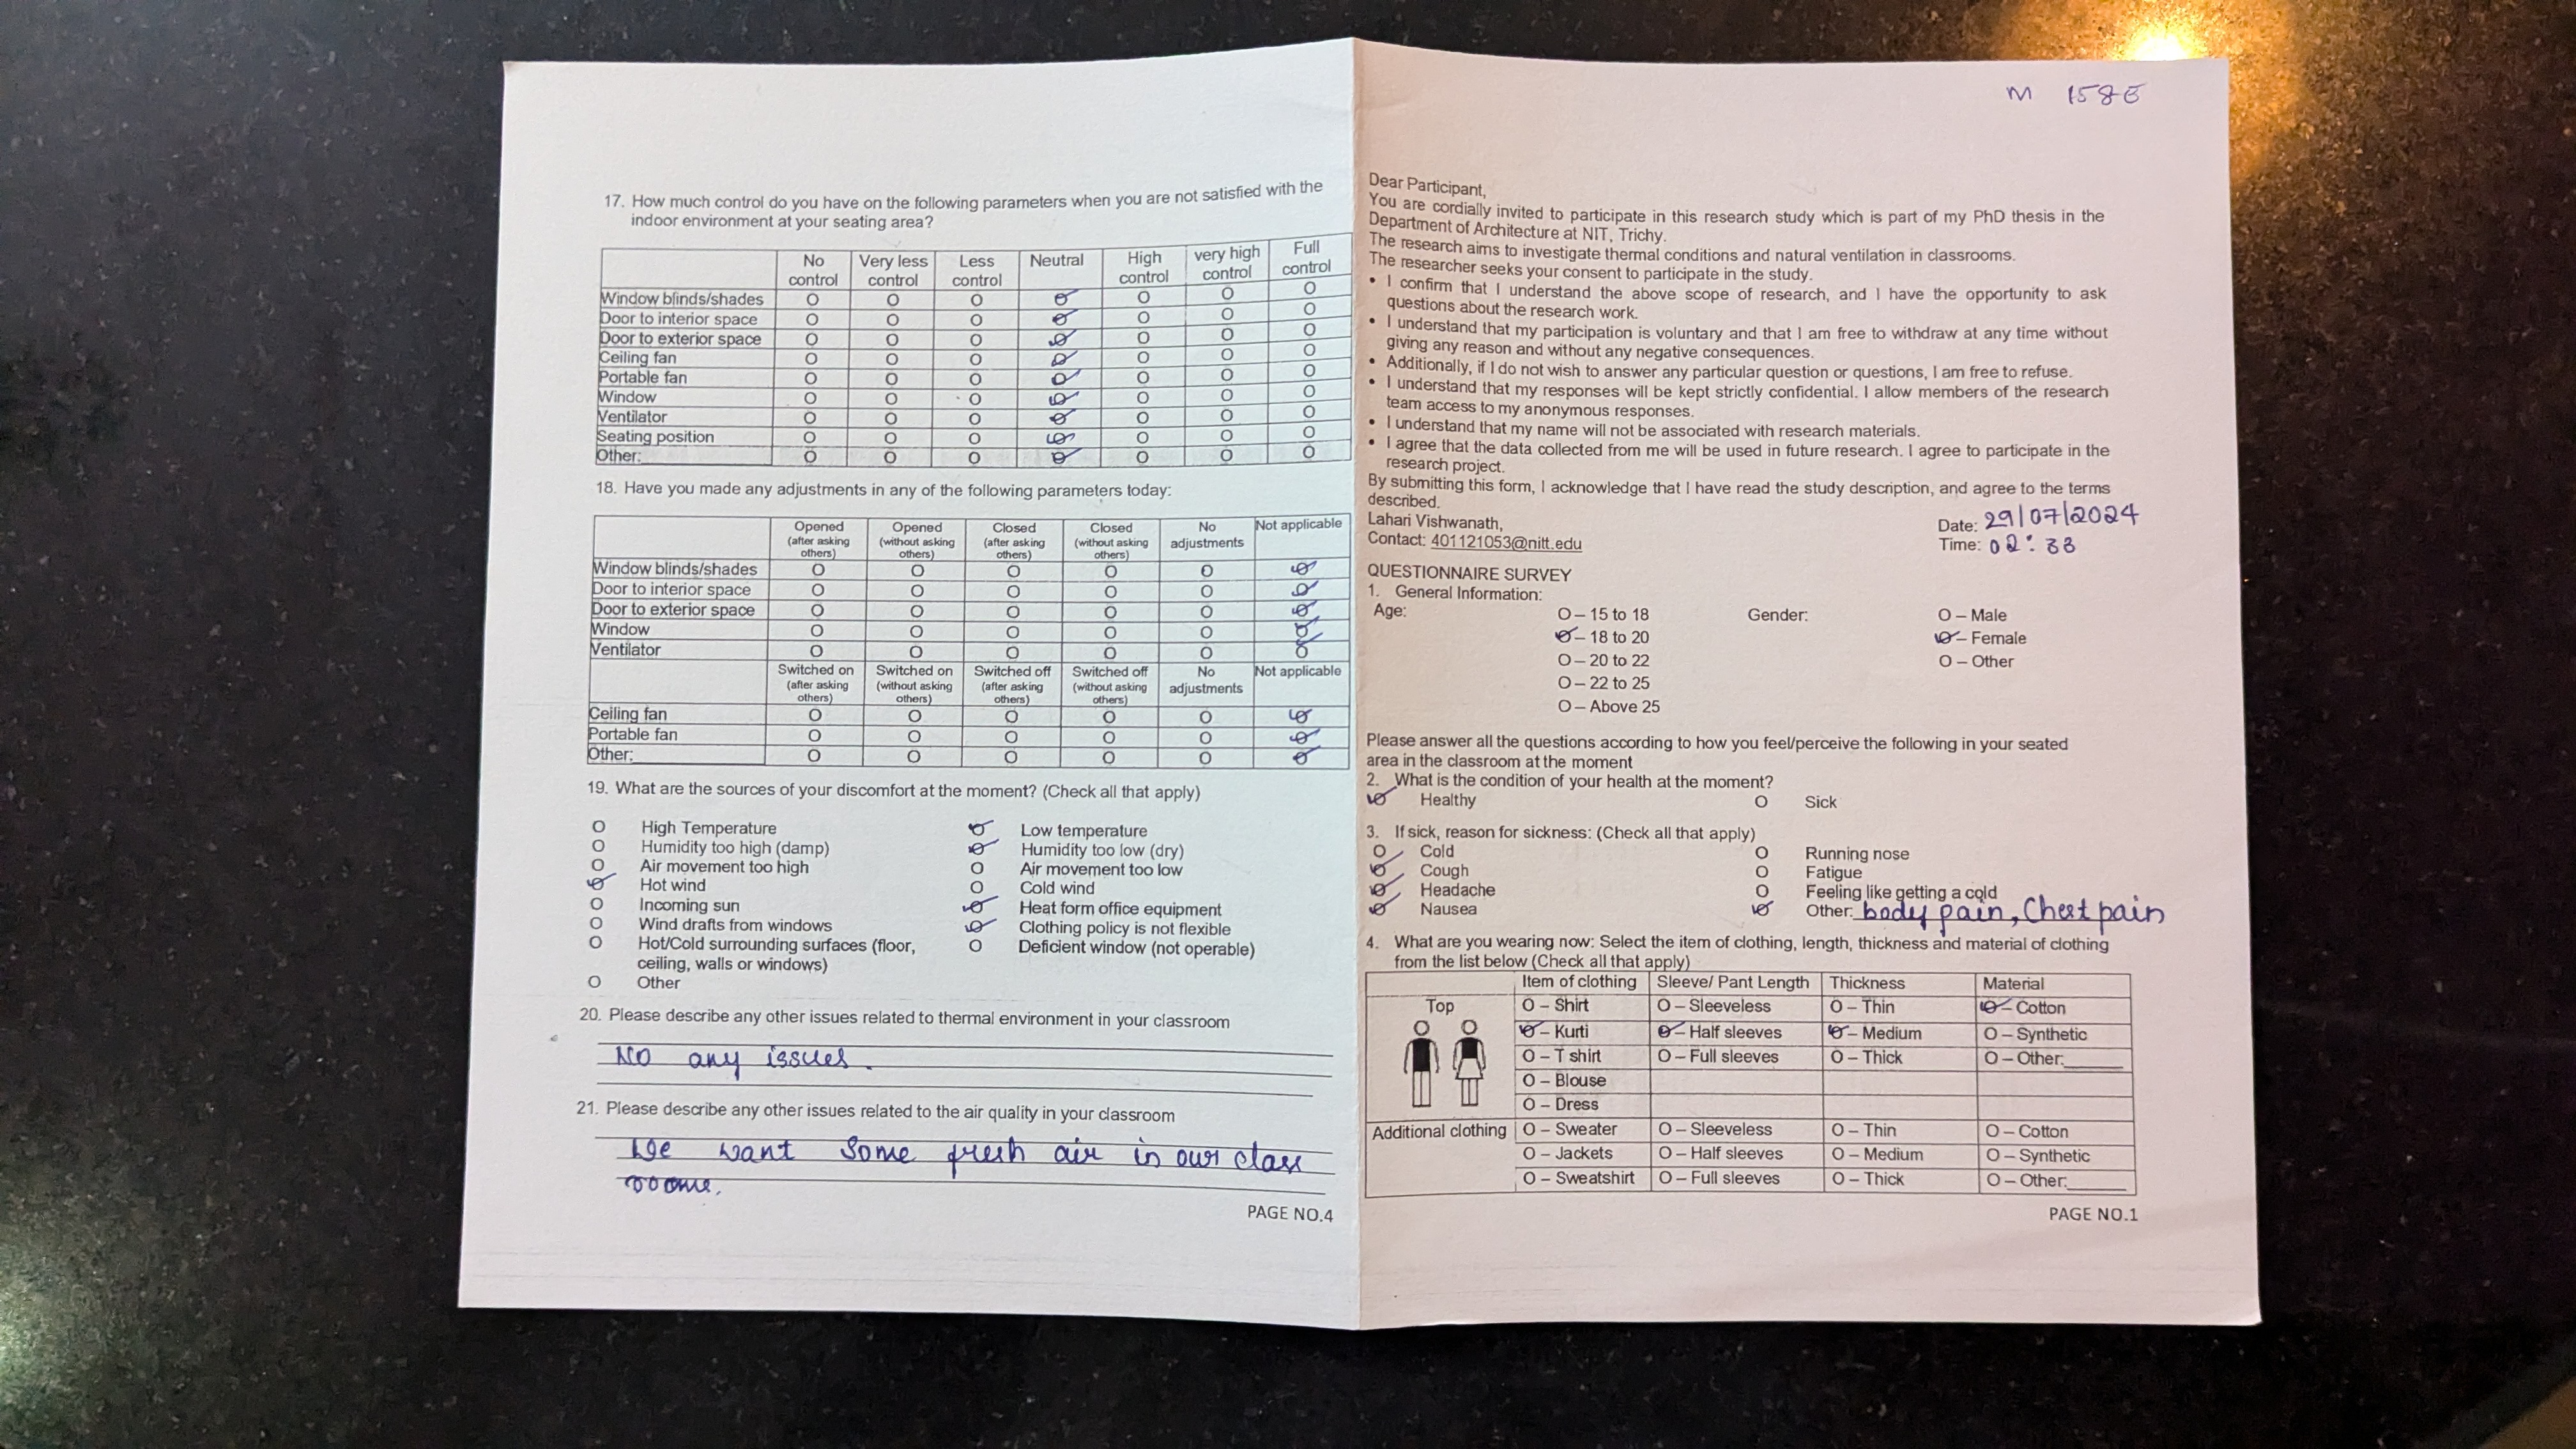 17. How much control do you have on the following parameters when you are not satisfied with the
indoor environment at your seating area?
No control Very less control Less control Neutral High control very high control Full control
Window blinds/shades O O O O O O O
Door to interior space O O O O O O O
Door to exterior space O O O O O O O
Ceiling fan O O O O O O O
Portable fan O O O O O O O
Window O O O O O O O
Ventilator O O O O O O O
Seating position O O O O O O O
Other: O O O O O O O
18. Have you made any adjustments in any of the following parameters today:
Opened (after asking others) Opened (without asking others) Closed (after asking others) Closed (without asking others) No adjustments Not applicable
Window blinds/shades O O O O O O
Door to interior space O O O O O O
Door to exterior space O O O O O O
Window O O O O O O
Ventilator O O O O O O
Switched on (after asking others) Switched on (without asking others) Switched off (after asking others) Switched off (without asking others) No adjustments Not applicable
Ceiling fan O O O O O O
Portable fan O O O O O O
Other: O O O O O O
19. What are the sources of your discomfort at the moment? (Check all that apply)
O High Temperature O Low temperature
O Humidity too high (damp) O Humidity too low (dry)
O Air movement too high O Air movement too low
O Hot wind O Cold wind
O Incoming sun O Heat form office equipment
O Wind drafts from windows O Clothing policy is not flexible
O Hot/Cold surrounding surfaces (floor, O Deficient window (not operable)
ceiling, walls or windows)
O Other
20. Please describe any other issues related to thermal environment in your classroom
No any issues.
21. Please describe any other issues related to the air quality in your classroom
We want Some fresh air in our class
rooms.
PAGE NO.4
Dear Participant,
You are cordially invited to participate in this research study which is part of my PhD thesis in the
Department of Architecture at NIT, Trichy.
The research aims to investigate thermal conditions and natural ventilation in classrooms.
The researcher seeks your consent to participate in the study.
• I confirm that I understand the above scope of research, and I have the opportunity to ask
questions about the research work.
• I understand that my participation is voluntary and that I am free to withdraw at any time without
giving any reason and without any negative consequences.
• Additionally, if I do not wish to answer any particular question or questions, I am free to refuse.
• I understand that my responses will be kept strictly confidential. I allow members of the research
team access to my anonymous responses.
• I understand that my name will not be associated with research materials.
• I agree that the data collected from me will be used in future research. I agree to participate in the
research project.
By submitting this form, I acknowledge that I have read the study description, and agree to the terms
described.
Lahari Vishwanath,
Contact: 401121053@nitt.edu
Date: 29/07/2024
Time: 02:33
QUESTIONNAIRE SURVEY
1. General Information:
Age: O – 15 to 18 Gender: O – Male
O – 18 to 20 O – Female
O – 20 to 22 O – Other
O – 22 to 25
O – Above 25
Please answer all the questions according to how you feel/perceive the following in your seated
area in the classroom at the moment
2. What is the condition of your health at the moment?
O Healthy O Sick
3. If sick, reason for sickness: (Check all that apply)
O Cold O Running nose
O Cough O Fatigue
O Headache O Feeling like getting a cold
O Nausea O Other: body pain, Chest pain
4. What are you wearing now: Select the item of clothing, length, thickness and material of clothing
from the list below (Check all that apply)
Item of clothing Sleeve/ Pant Length Thickness Material
Top O – Shirt O – Sleeveless O – Thin O – Cotton
O – Kurti O – Half sleeves O – Medium O – Synthetic
O – T shirt O – Full sleeves O – Thick O – Other:
O – Blouse
O – Dress
Additional clothing O – Sweater O – Sleeveless O – Thin O – Cotton
O – Jackets O – Half sleeves O – Medium O – Synthetic
O – Sweatshirt O – Full sleeves O – Thick O – Other:
PAGE NO.1